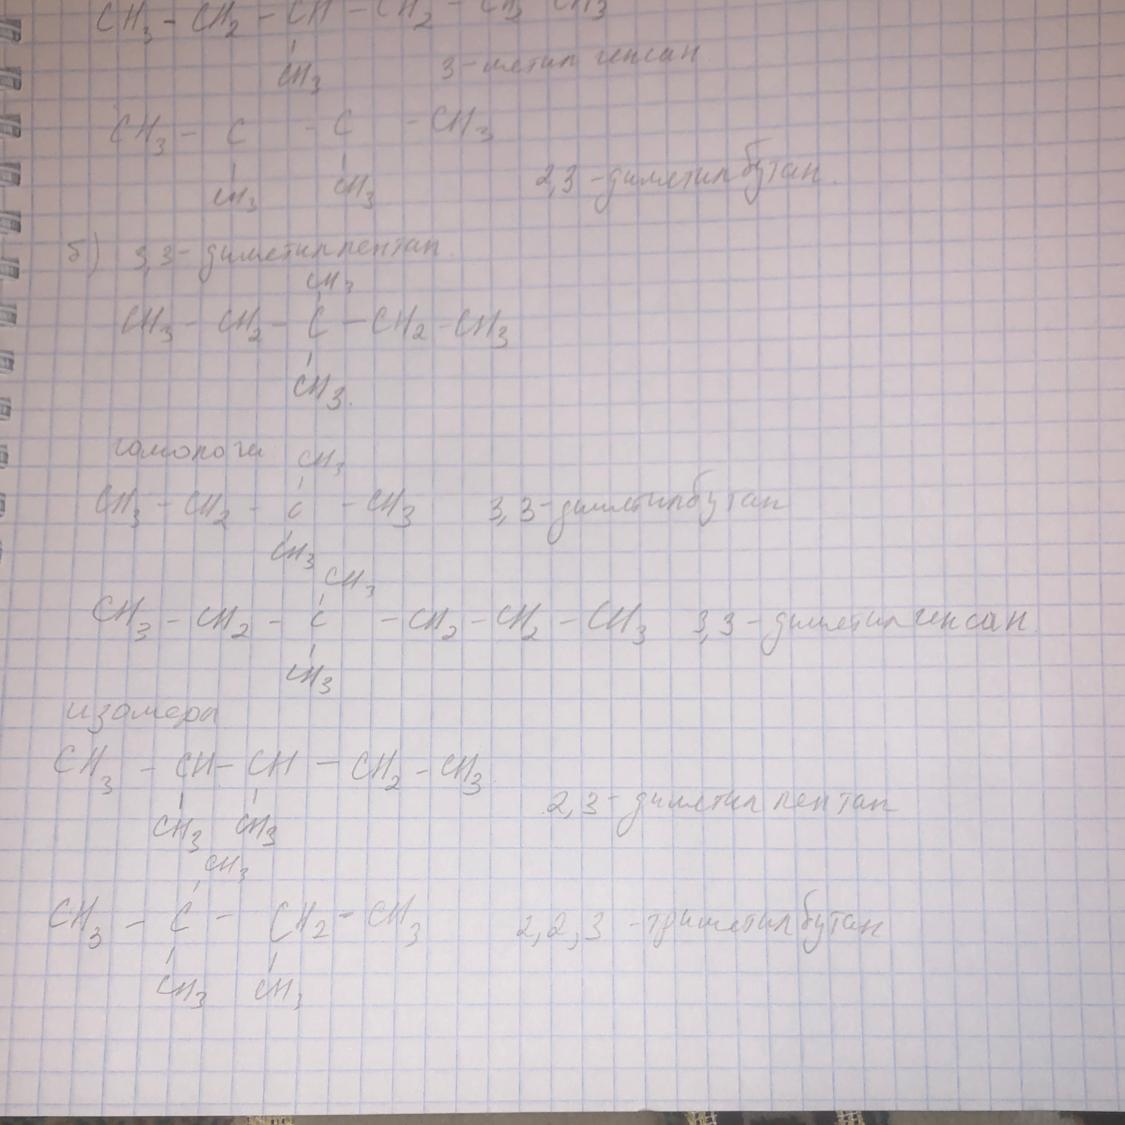 CH3 - CH2 - CH - CH2 - CH2 CH3
CH3 3-метил гексан
CH3 - C - C - CH3
CH3 CH3 2,3-диметилбутан
б) 3,3-диметилпентан.
CH3
CH3 - CH2 - C - CH2 - CH3
CH3.
гомологи CH3
CH3 - CH2 - C - CH3 3,3-диметилбутан
CH3
CH3
CH3 - CH2 - C - CH2 - CH2 - CH3 3,3-диметилгексан
CH3
изомеры
CH3 - CH - CH - CH2 - CH3
CH3 CH3 2,3-диметилпентан
CH3
CH3 - C - CH2 - CH3 2,2,3-триметилбутан
CH3 CH3